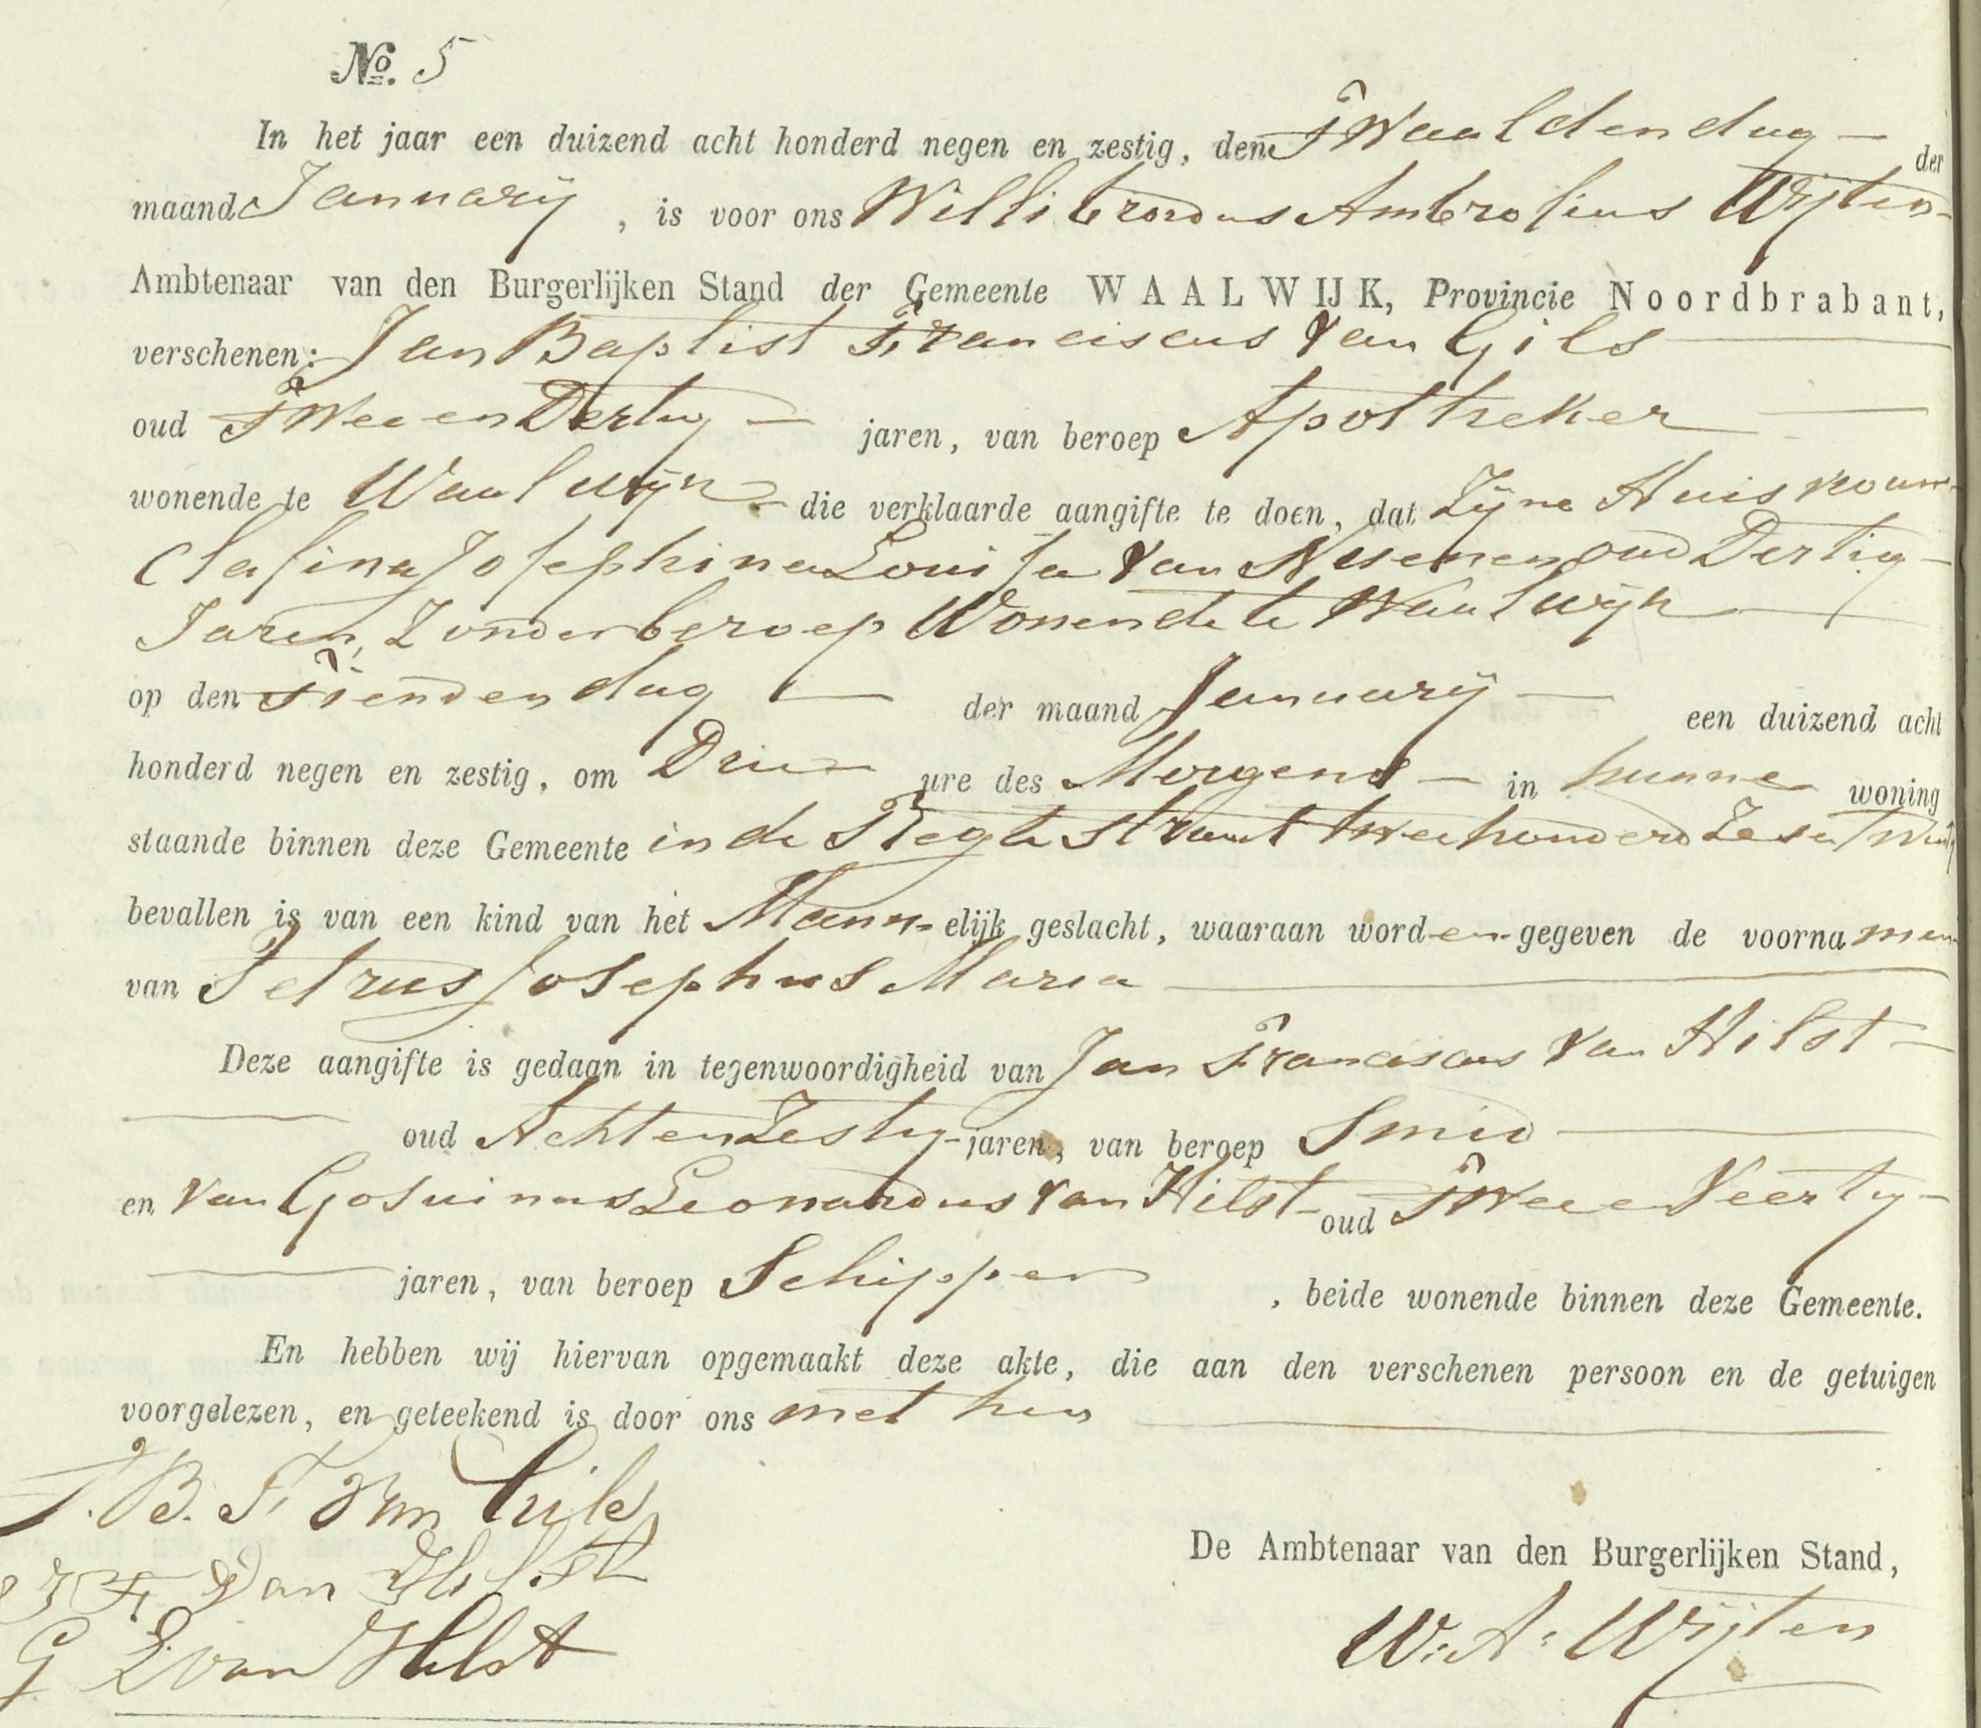 No. 5
In het jaar een duizend acht honderd negen en zestig, den Twaalden dag der
maand Januarij, is voor ons Willibrordus Ambrosius Wijten
Ambtenaar van den Burgerlijken Stand der Gemeente WAALWIJK, Provincie Noordbrabant,
verschenen: Jan Baptist Franciscus van Gils
oud Twee en Dertig jaren, van beroep Apotheker
wonende te Waalwijk die verklaarde aangifte te doen, dat Zijne Huisvrouw
Josephina Louisa van oud Dertig
Jaren, Zonder beroep Wonende te Waalwijk
op den Tienden dag der maand Januarij een duizend acht
honderd negen en zestig, om Drie ure des Morgens in hunne woning
staande binnen deze Gemeente in de Regte straat twee honderd Zes en
bevallen is van een kind van het Mannelijk geslacht, waaraan worden gegeven de voornamen
van Petrus Josephus Maria
Deze aangifte is gedaan in tegenwoordigheid van Jan Franciscus van Hilst
oud Acht en Zestig jaren, van beroep Smid
en van Gosuinus Leonardus van Hilst oud Twee en Veertig
jaren, van beroep Schipper, beide wonende binnen deze Gemeente.
En hebben wij hiervan opgemaakt deze akte, die aan den verschenen persoon en de getuigen
voorgelezen, en geteekend is door ons met hen
J. B. F. van Gils
J F van Hilst
G L van Hilst
De Ambtenaar van den Burgerlijken Stand,
W. A. Wijten